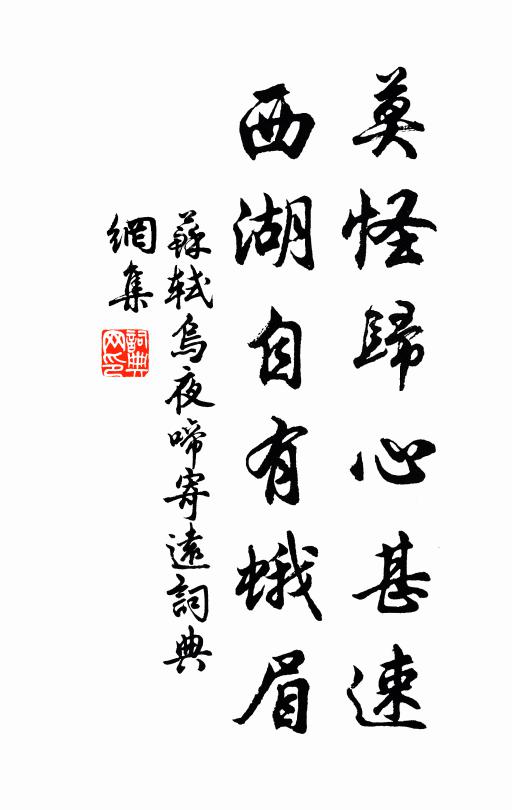 莫怪歸心甚速
西湖自有蛾眉
蘇軾烏夜啼寄遠詞典
網集
詞典
网印